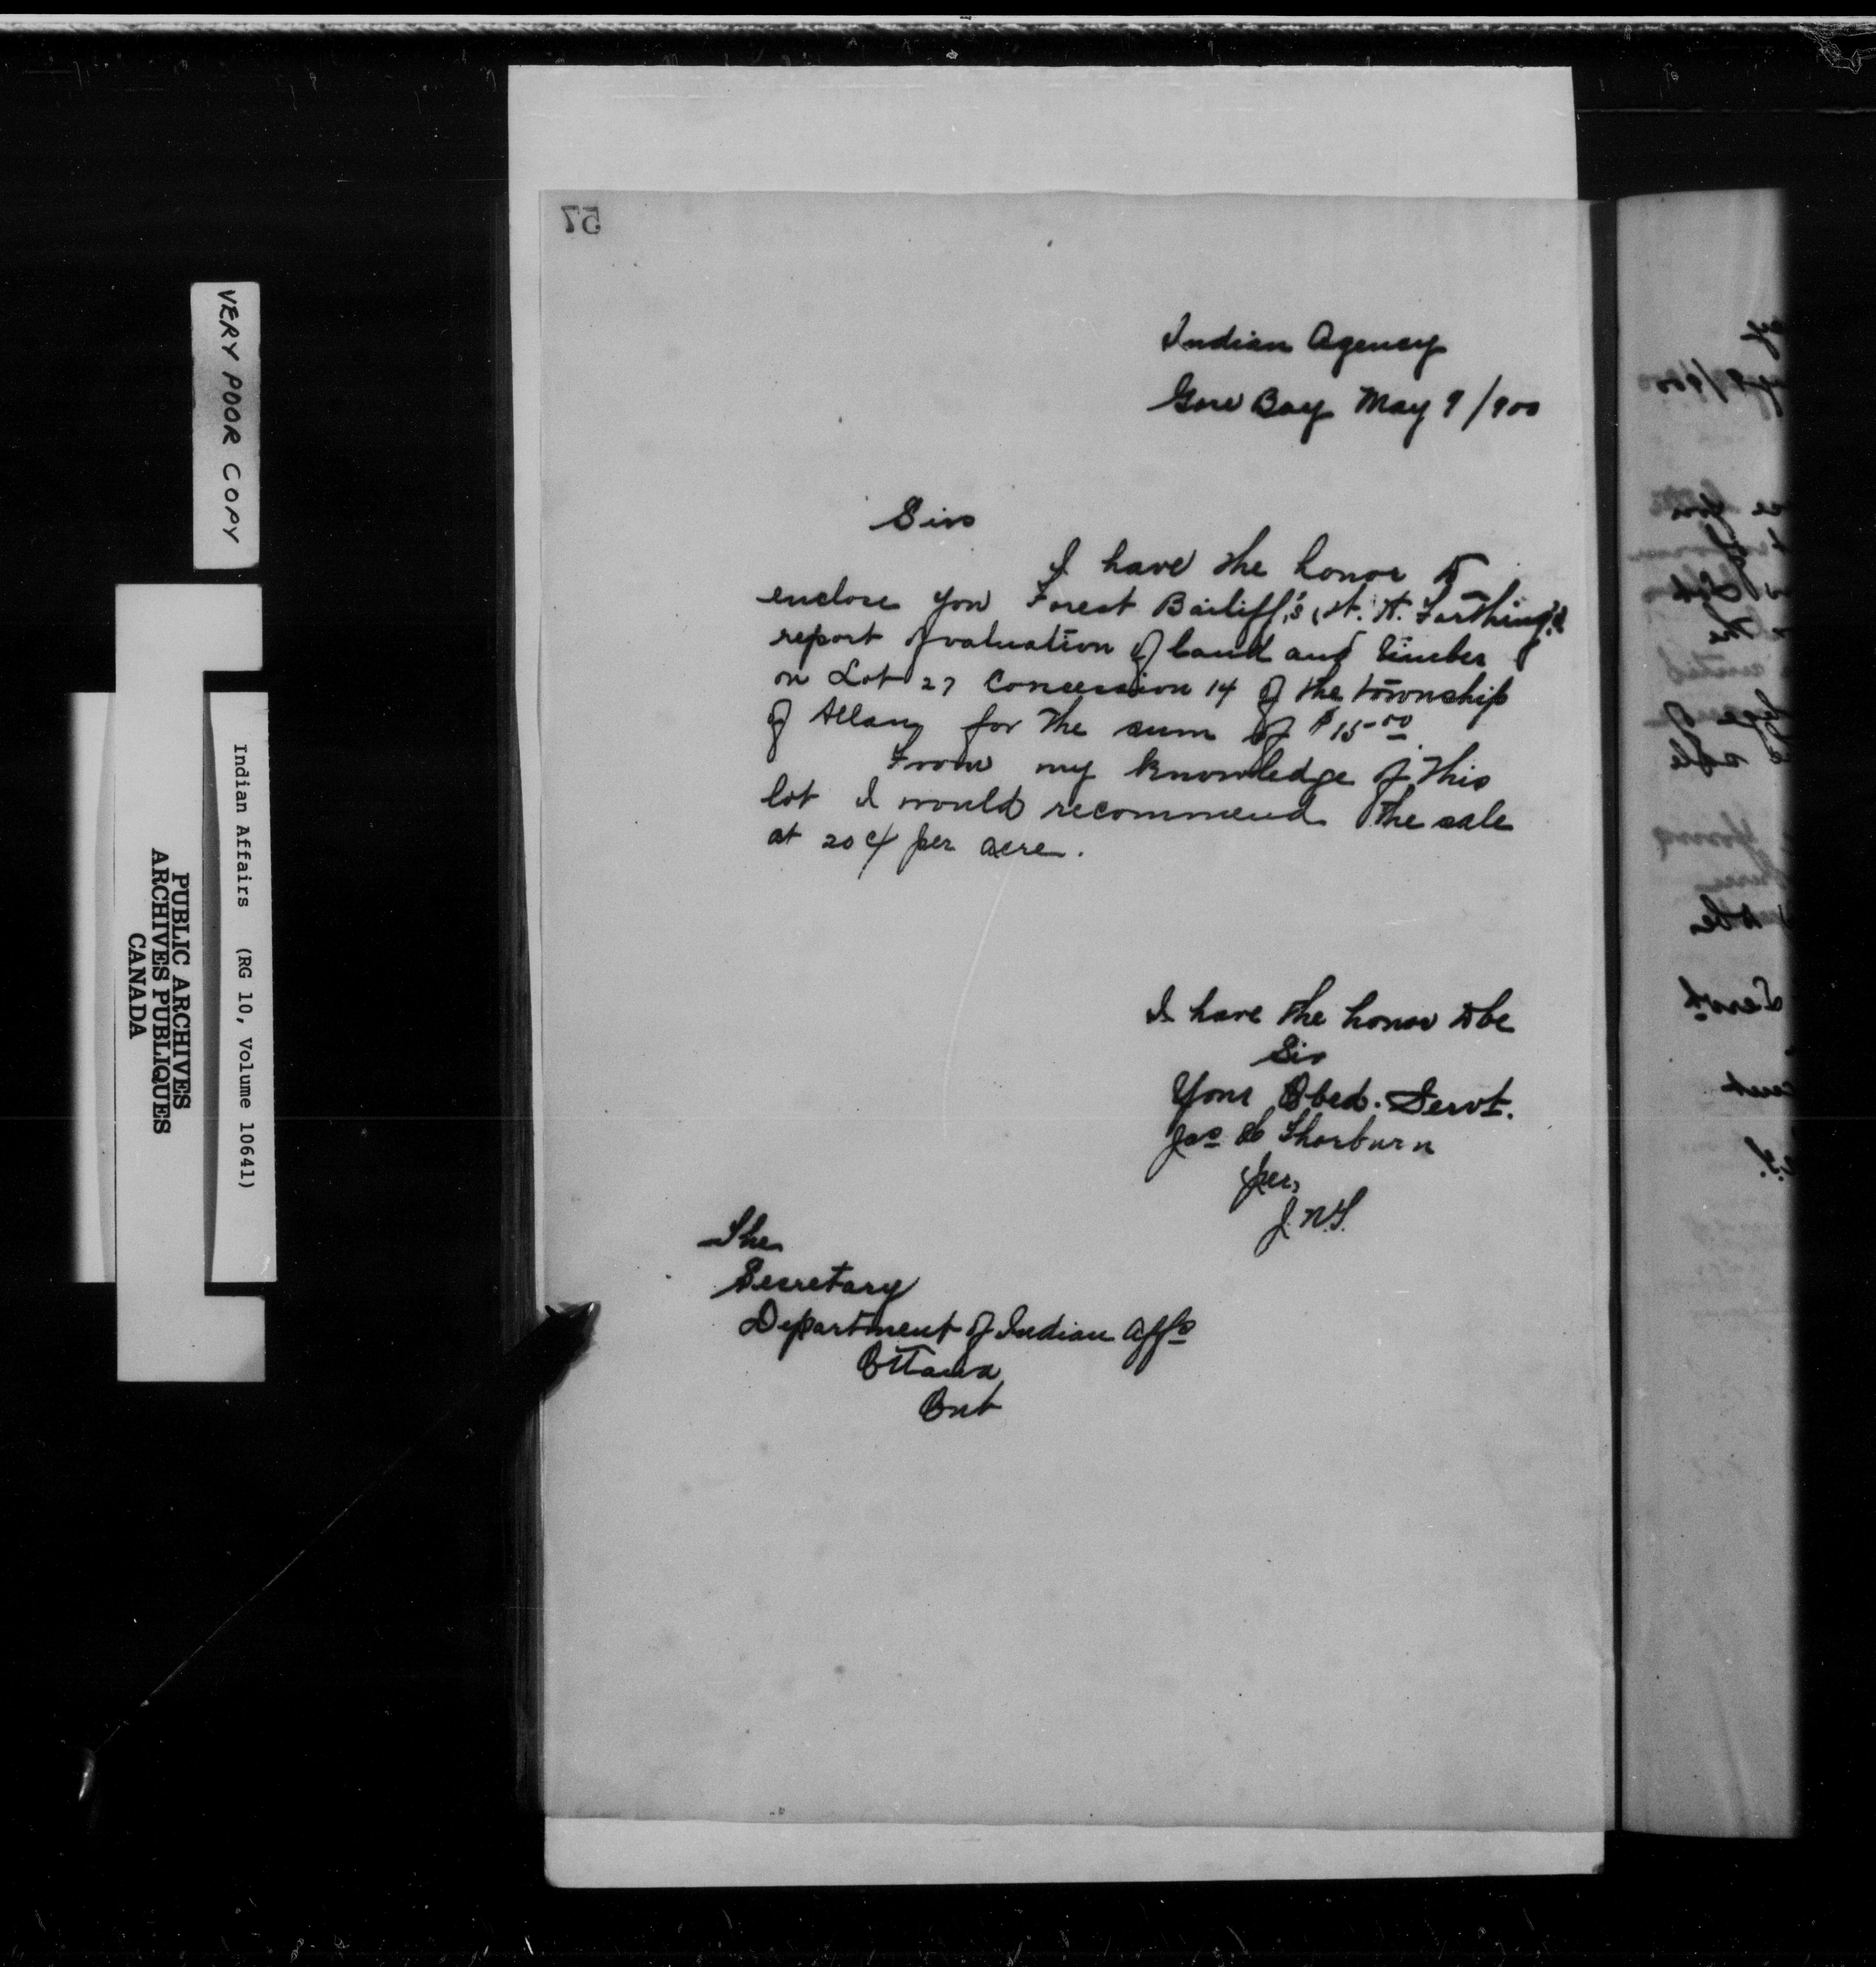 57
Indian Agency
Gore Bay May 9/900
Sir
I have the honor to
enclose you Forest Bailiff's (H. H. Farthing's)
report of valuation of land and timber
on Lot 27 Concession 14 of the township
of Allan, for the sum of $15.00
From my knowledge of this
lot I would recommend the sale
at 20 ¢ per acre.
I have the honor to be
Sir
Your Obed. Servt.
Jas Thorburn
per,
J.N.T.
The
Secretary
Department of Indian Affs
Ottawa
Ont
VERY POOR COPY
Indian Affairs (RG 10, Volume 10641)
PUBLIC ARCHIVES
ARCHIVES PUBLIQUES
CANADA